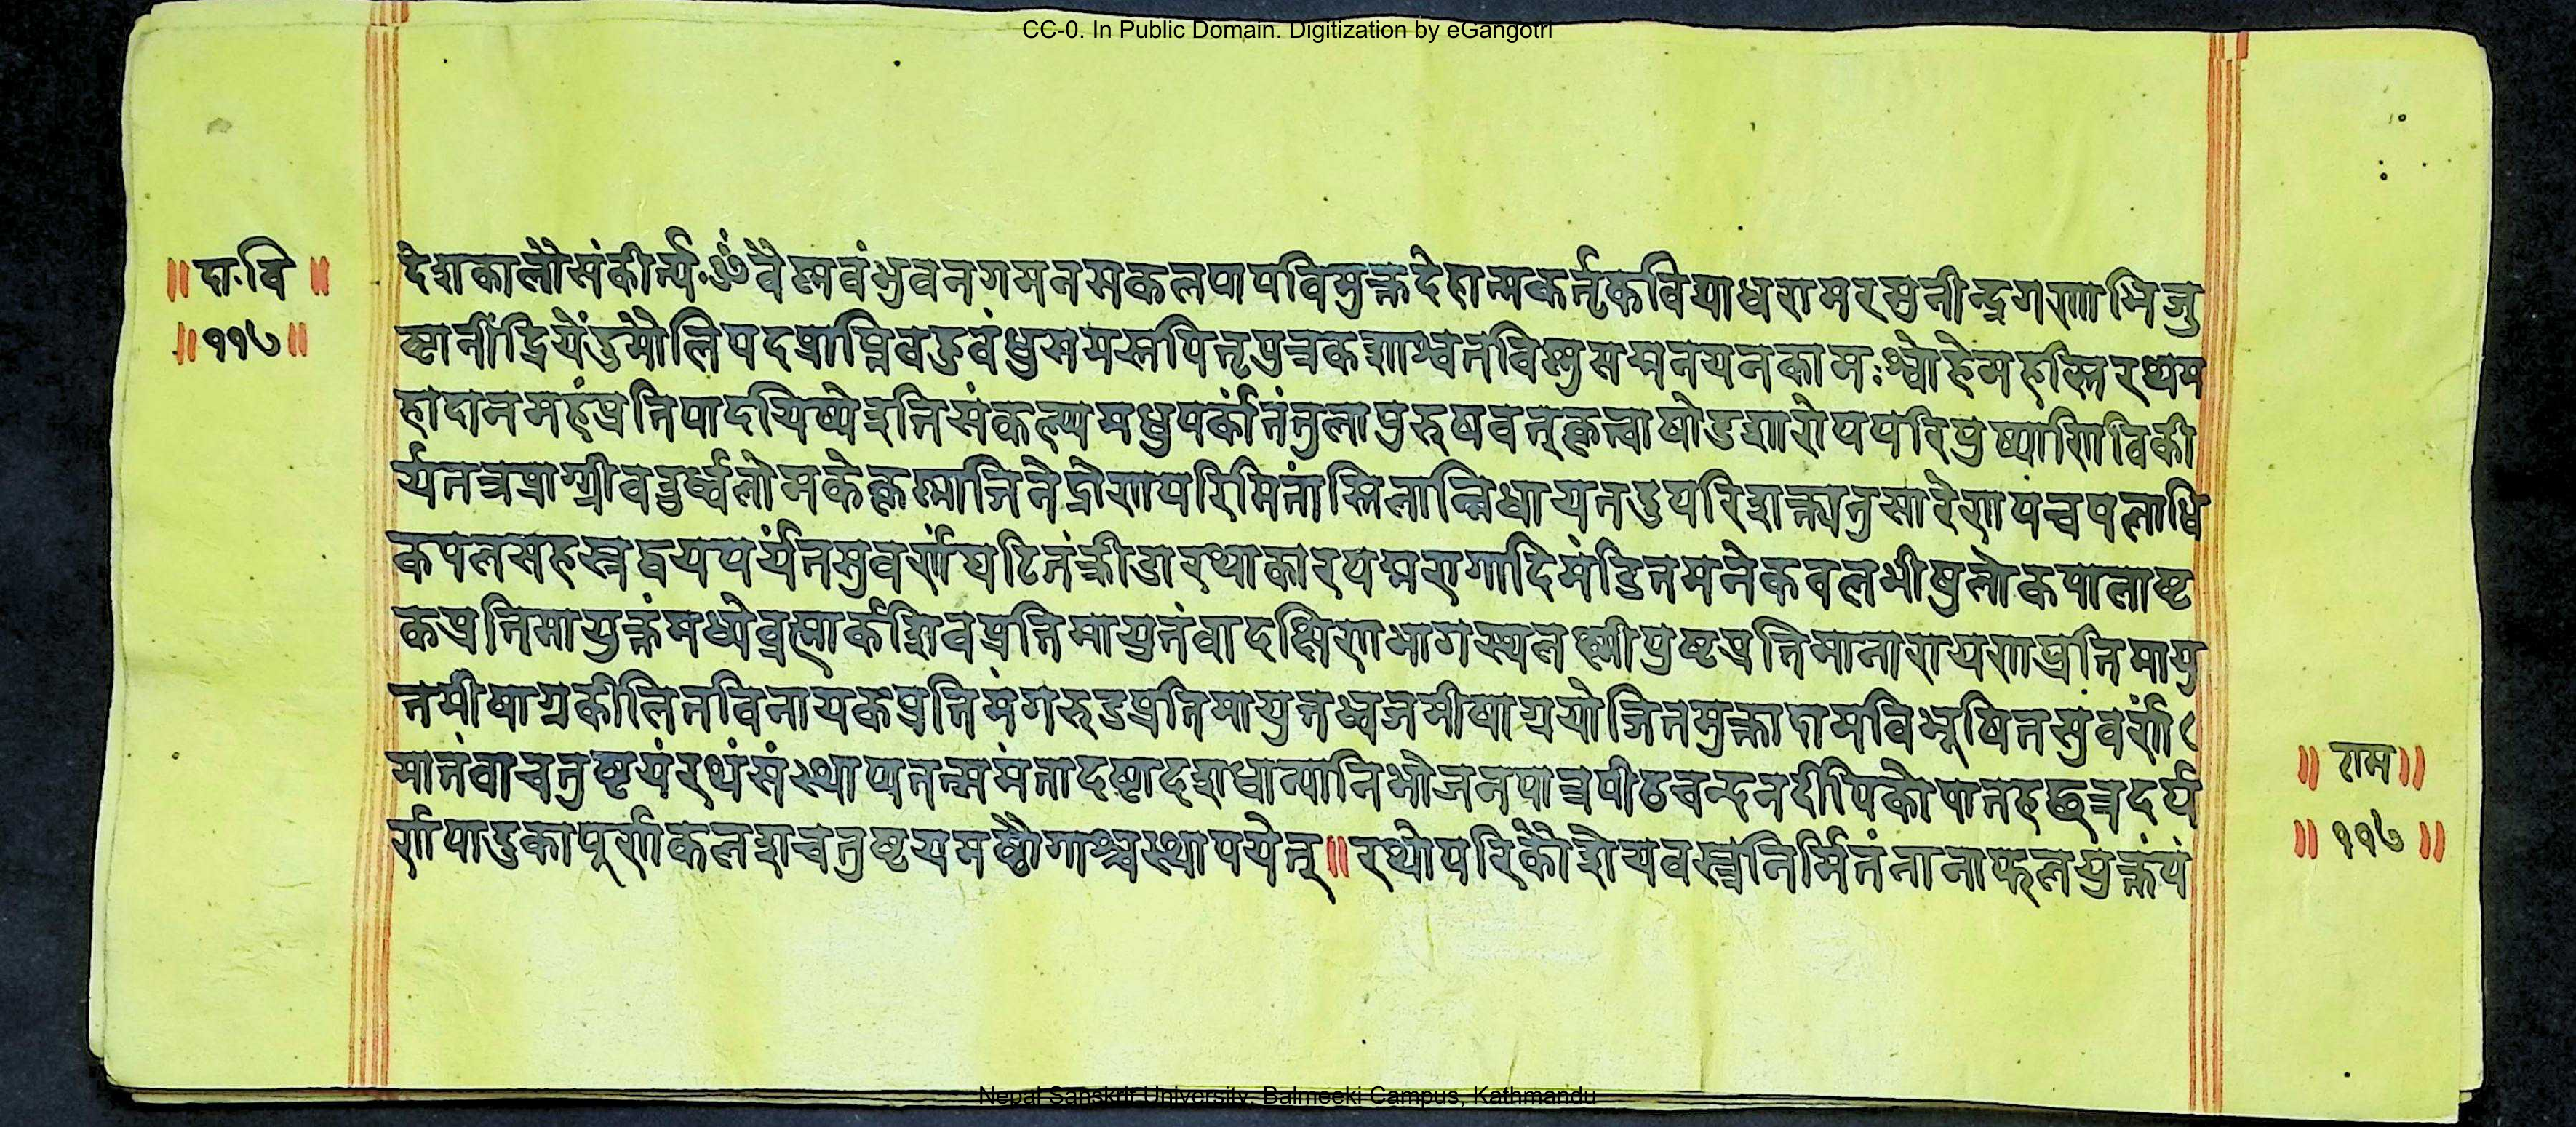 CC-0. In Public Domain. Digitization by eGangotri
॥ दा.वि ॥
॥११७॥
देशकालौसंकीर्त्य ॐ वैष्णवंभुवनगमनसकलपापविमुक्तदेहात्मकर्तृकविद्याधरामरमुनीन्द्रगणाभिजु
ष्टानींद्रियेंडुमौलिपदप्राप्तिवडुवंधुसमस्तपितृपुत्रकशाश्वतविष्णुसद्मनयनकामःश्वोहेमहस्तिरथम
हादानमहंप्रतिपादयिष्येइतिसंकल्प्यमधुपर्कांतंतुलापुरुषवत्कृत्वाषोडशारोपपरिपुष्पाणिविकी
र्यतत्रप्राग्ग्रीवडुर्ध्वलोमकेकृष्णाजिनेद्रोणपरिमितांस्तिलान्निधायतडुपरिशक्त्यनुसारेणपंचपलाधि
कपलसहस्रद्वयपर्यंतसुवर्णघटितंक्रीडारथाकारपद्मरागादिमंडितमनेकवलभीषुलोकपालाष्ट
कप्रतिमायुक्तंमध्येव्रह्मार्कशिवप्रतिमायुतंवादक्षिणभागस्थलक्ष्मीपुष्टप्रतिमानारायणप्रतिमायु
तमीषाग्रकीलितविनायकप्रतिमंगरुडप्रतिमायुतध्वजमीषाग्रयोजितमुक्तादामविभूषितसुवर्ण
मातंवाचतुष्टयंरथंसंस्थाप्यतत्समंतादष्टादशधान्यानिभोजनपात्रपीठचन्दनदीपिकोपानहछत्रदर्प
णपाडुकापूर्णकलशचतुष्टयमष्टौगाश्चस्थापयेत्॥रथोपरिकौशेयवस्त्रनिर्मितंनानाफलयुक्तंपं
॥ राम॥
॥ ११७ ॥
Nepal Sanskrit University, Balmeeki Campus, Kathmandu